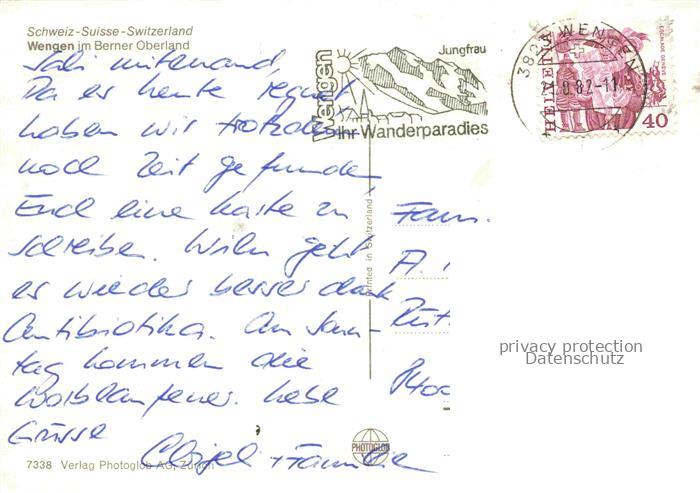 Schweiz-Suisse-Switzerland
Wengen im Berner Oberland
Sali mitenand,
Da es heute regnet
haben wir trotzdem
noch Zeit gefunden
Euch eine Karte zu
schreiben. geht
es wieder besser dank
Antibiotika. Am Sonn-
tag kommen die
Liebe
Grüsse
+ Familie
Wengen
Jungfrau
Ihr Wanderparadies
3823 WENGEN
8.82-11
HELVETIA
ESCALADE GENÈVE
40
Printed in Switzerland
Fam.
A.
Rüt.
privacy protection
Datenschutz
PHOTOGLOB
7338 Verlag Photoglob AG, Zürich